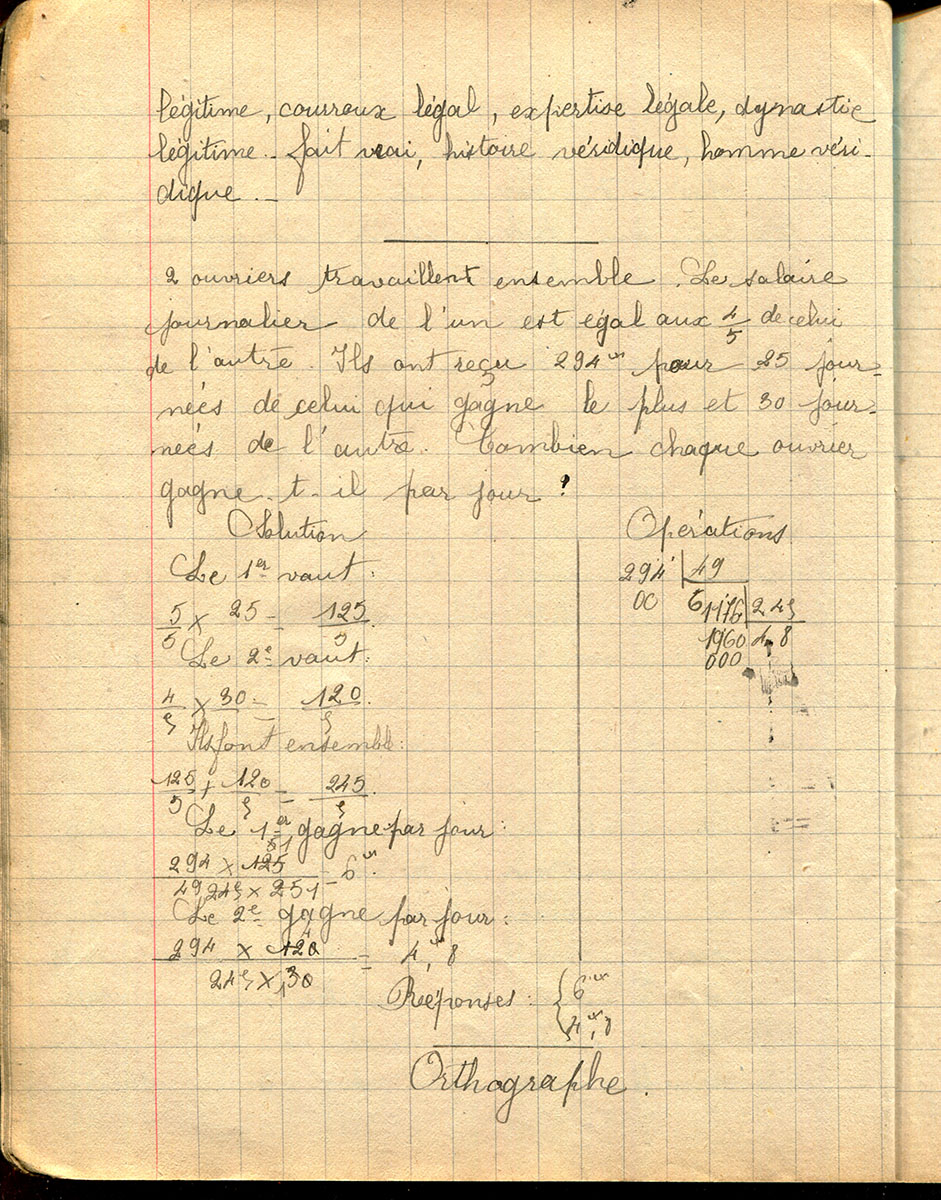 légitime, courroux légal, expertise légale, dynastie
légitime. fait vrai, histoire véridique, homme véri-
dique. _
2 ouvriers travaillent ensemble. Le salaire
journalier de l'un est égal aux 4/5 de celui
de l'autre. Ils ont reçu 294 pour 25 jour-
neés de celui qui gagne le plus et 30 jour-
neés de l'autre. Combien chaque ouvrier
gagne-t-il par jour ?
Solution
Le 1er vaut:
5/5 x 25 = 125/5.
Le 2e vaut:
4/5 x 30 = 120/5.
Ils font ensemble:
125/5 + 120/5 = 245/5.
Le 1er gagne par jour:
294 x 125 / 245 x 25 = 6
Le 2e gagne par jour:
294 x 120 / 245 x 30 = 4,8
Réponses: { 6
4,8
Opérations
294 | 49
00 6
1176 | 245
1960 4,8
000
Orthographe.